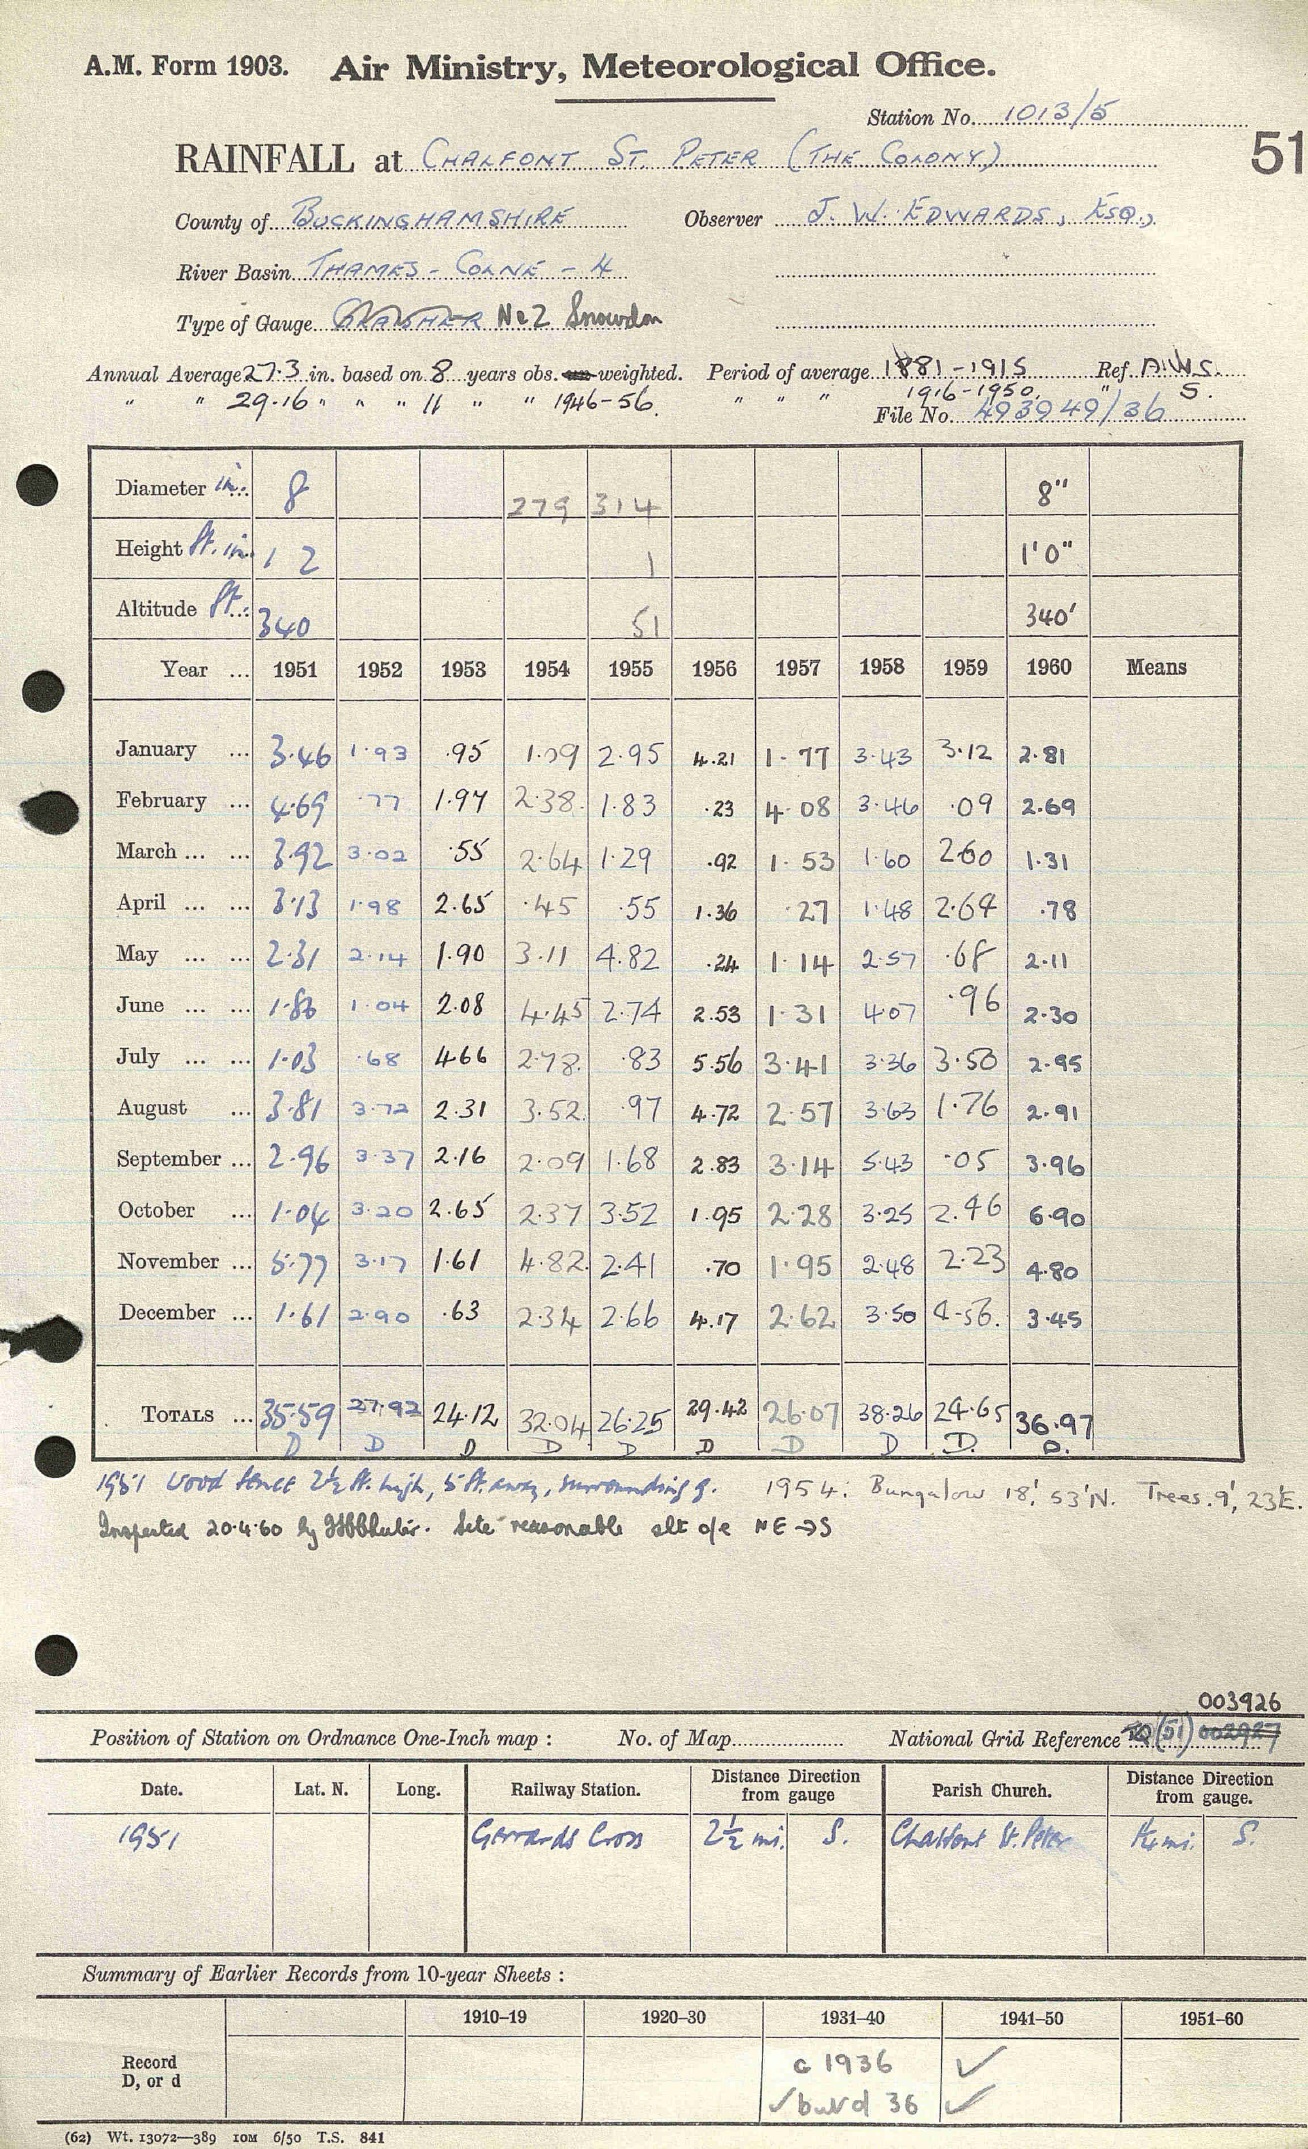 A.M. Form 1903. Air Ministry, Meteorological Office.
Station No. 1013/5
51
RAINFALL at CHALFONT ST. PETER (THE COLONY)
County of BUCKINGHAMSHIRE Observer J. W. EDWARDS, ESQ.,
River Basin THAMES - COLNE - 4
Type of Gauge GLAISHER No 2 Snowdon
Annual Average 27.3 in. based on 8 years obs. weighted. Period of average 1881-1915 Ref. A.W.S.
" " 29.16 " " " 11 " " 1946-56. " " " 1916-1950. " S.
File No. 493949/36
Diameter in. 8 279 314 8"
Height ft. in. 1 2 1 1'0"
Altitude ft. 340 51 340'
Year ... 1951 1952 1953 1954 1955 1956 1957 1958 1959 1960 Means
January ... 3.46 1.93 .95 1.09 2.95 4.21 1.77 3.43 3.12 2.81
February ... 4.69 .77 1.97 2.38 1.83 .23 4.08 3.46 .09 2.69
March ... ... 3.92 3.02 .55 2.64 1.29 .92 1.53 1.60 2.60 1.31
April ... ... 3.13 1.98 2.65 .45 .55 1.36 .27 1.48 2.64 .78
May ... ... 2.31 2.14 1.90 3.11 4.82 .24 1.14 2.57 .68 2.11
June ... ... 1.86 1.04 2.08 4.45 2.74 2.53 1.31 4.07 .96 2.30
July ... ... 1.03 .68 4.66 2.78 .83 5.56 3.41 3.36 3.50 2.95
August ... 3.81 3.72 2.31 3.52 .97 4.72 2.57 3.63 1.76 2.91
September ... 2.96 3.37 2.16 2.09 1.68 2.83 3.14 5.43 .05 3.96
October ... 1.04 3.20 2.65 2.37 3.52 1.95 2.28 3.25 2.46 6.90
November ... 5.77 3.17 1.61 4.82 2.41 .70 1.95 2.48 2.23 4.80
December ... 1.61 2.90 .63 2.34 2.66 4.17 2.62 3.50 4.56 3.45
TOTALS ... 35.59 27.92 24.12 32.04 26.25 29.42 26.07 38.26 24.65 36.97
D D D D D D D D D. D.
1951 Wood fence 2½ ft. high, 5 ft. away, surrounding g. 1954. Bungalow 18', 53'N. Trees. 9', 23'E.
Inspected 20.4.60 by Site reasonable slt o/e NE → S
003926
Position of Station on Ordnance One-Inch map : No. of Map National Grid Reference TQ (51) 002927
Date. Lat. N. Long. Railway Station. Distance Direction from gauge Parish Church. Distance Direction from gauge.
1951 Gerrards Cross 2½ mi. S. Chalfont St. Peter 1¼ mi. S.
Summary of Earlier Records from 10-year Sheets :
1910–19 1920–30 1931–40 1941–50 1951–60
Record c 1936 ✓
D, or d ✓ but d 36 ✓
(62) Wt. 13072—389 10M 6/50 T.S. 841